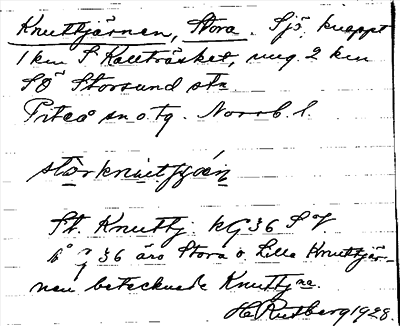 Knuttjärnen, Stora. Sjö knappt
1 km S Kallträsket, ung 2 km
SÖ Storsund stn
Piteå sn o tg. Norrb. l.
St. Knuttj. kG 36 SV.
På 36 äro Stora o. Lilla Knuttjär-
nen betecknade Knuttjne.
H. Rutberg 1928.